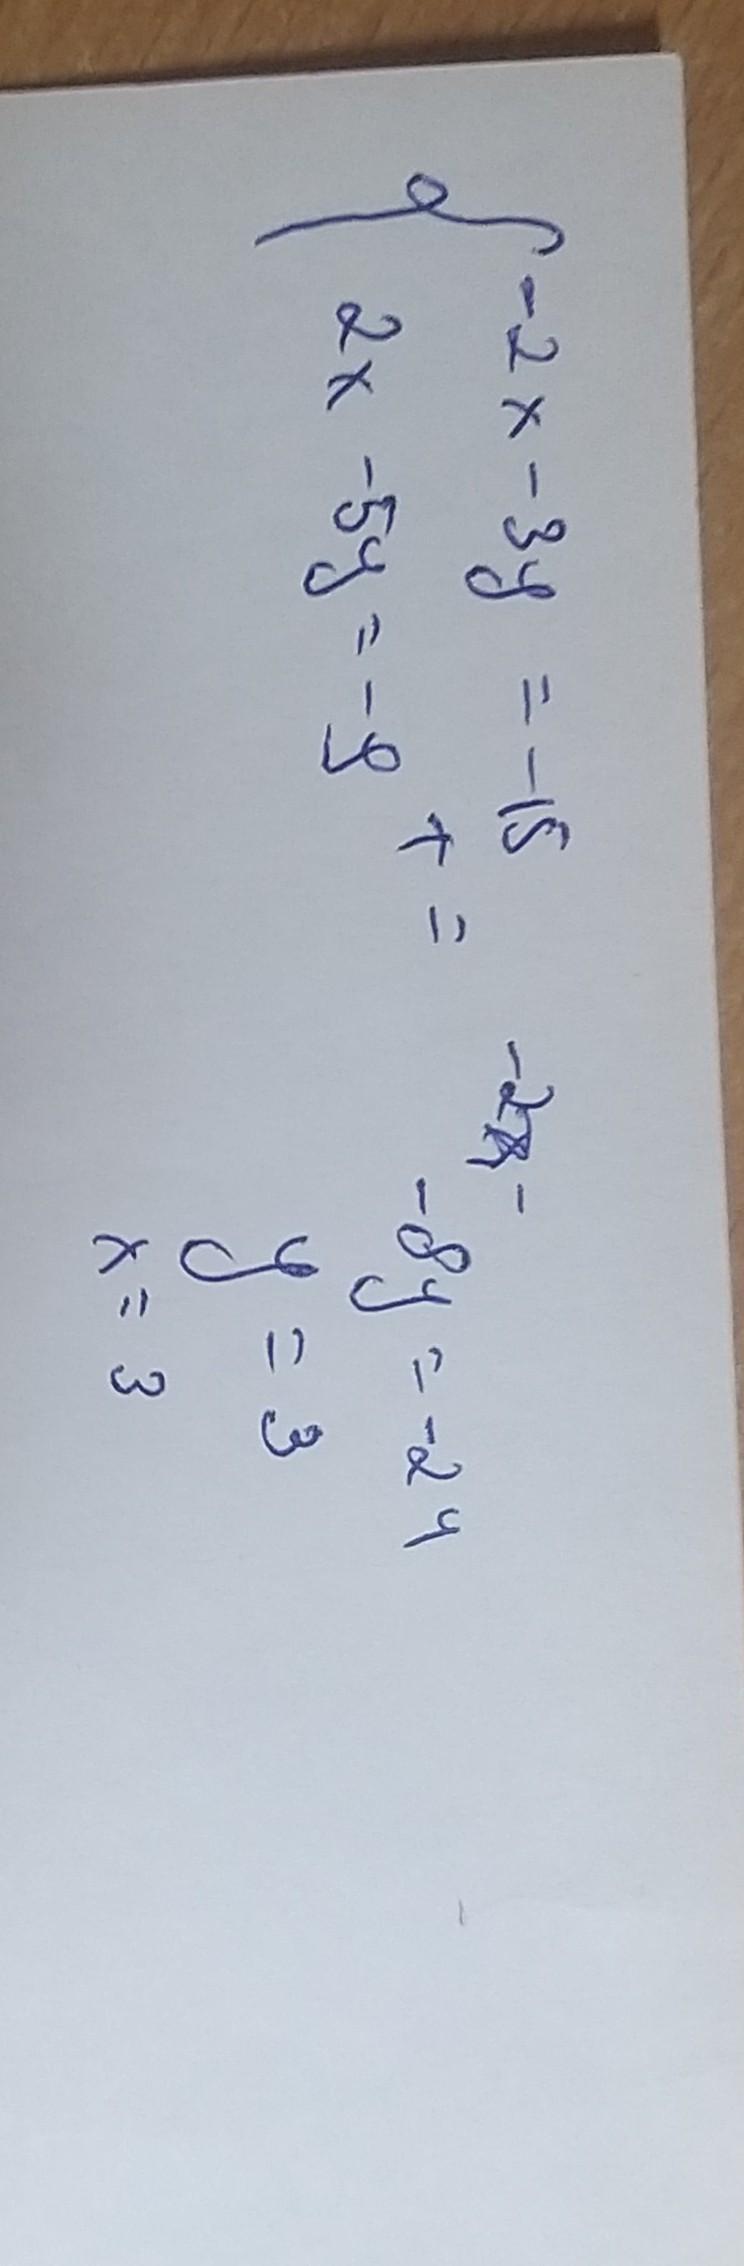 -2x - 3y = -15
2x - 5y = -9
+ =
-8y = -24
y = 3
x = 3